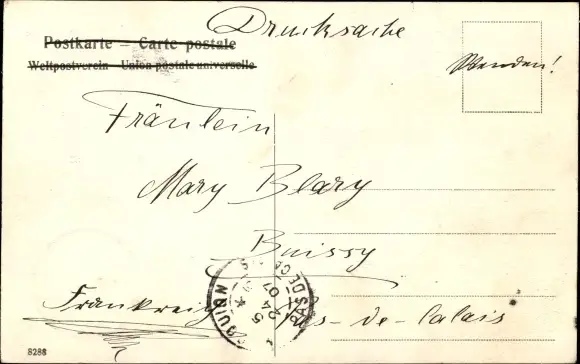 Drucksache
Postkarte – Carte postale
Weltpostverein – Union postale universelle
Wenden!
Fräulein
Mary Blary
Buissy
Frankreich
Pas-de-Calais
PAS DE C
5
07
8288